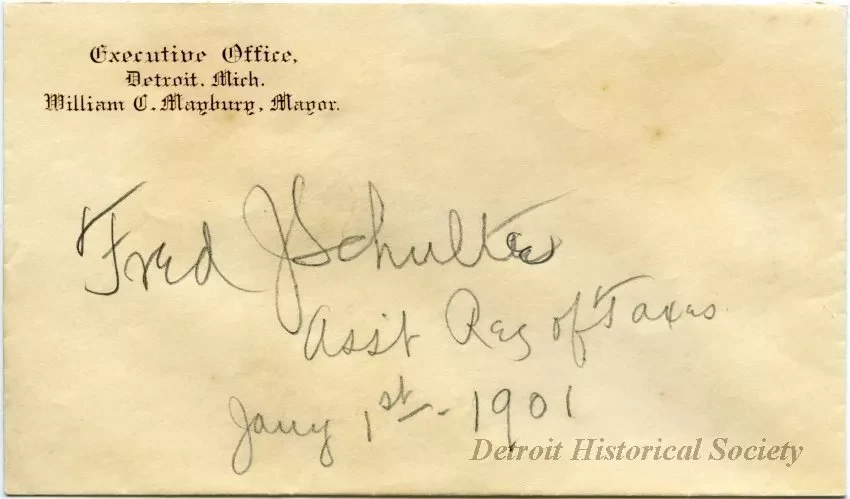 Executive Office,
Detroit, Mich.
William C. Maybury, Mayor.
Fred J Schulte
Ass't Reg of Taxes
Jany 1st - 1901
Detroit Historical Society